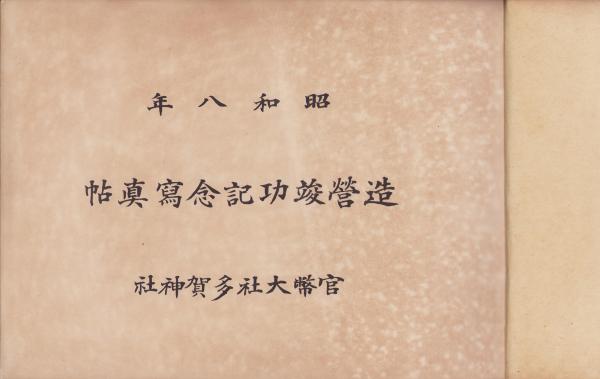 昭和八年
造營竣功記念寫眞帖
官幣大社多賀神社